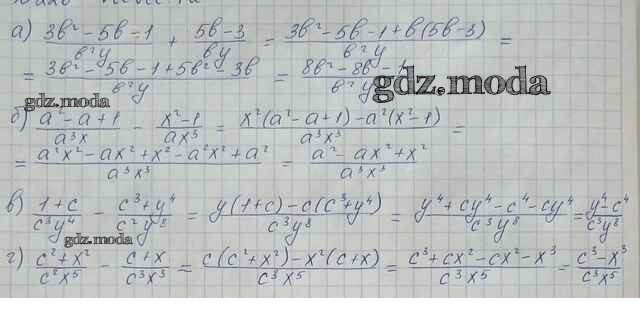 а) (3в² − 5в − 1)/(в²y) + (5в − 3)/(вy) = (3в² − 5в − 1 + в(5в − 3))/(в²y) =
= (3в² − 5в − 1 + 5в² − 3в)/(в²y) = (8в² − 8в − 1)/(в²y)
gdz.moda
gdz.moda
б) (a² − a + 1)/(a³x) − (x² − 1)/(ax³) = (x²(a² − a + 1) − a²(x² − 1))/(a³x³) =
= (a²x² − ax² + x² − a²x² + a²)/(a³x³) = (a² − ax² + x²)/(a³x³)
в) (1 + c)/(c³y⁴) − (c³ + y⁴)/(c²y⁸) = (y(1 + c) − c(c³ + y⁴))/(c³y⁸) = (y⁴ + cy⁴ − c⁴ − cy⁴)/(c³y⁸) = (y⁴ − c⁴)/(c³y⁸)
gdz.moda
г) (c² + x²)/(c²x⁵) − (c + x)/(c³x³) = (c(c² + x²) − x²(c + x))/(c³x⁵) = (c³ + cx² − cx² − x³)/(c³x⁵) − (c³ − x³)/(c³x⁵)